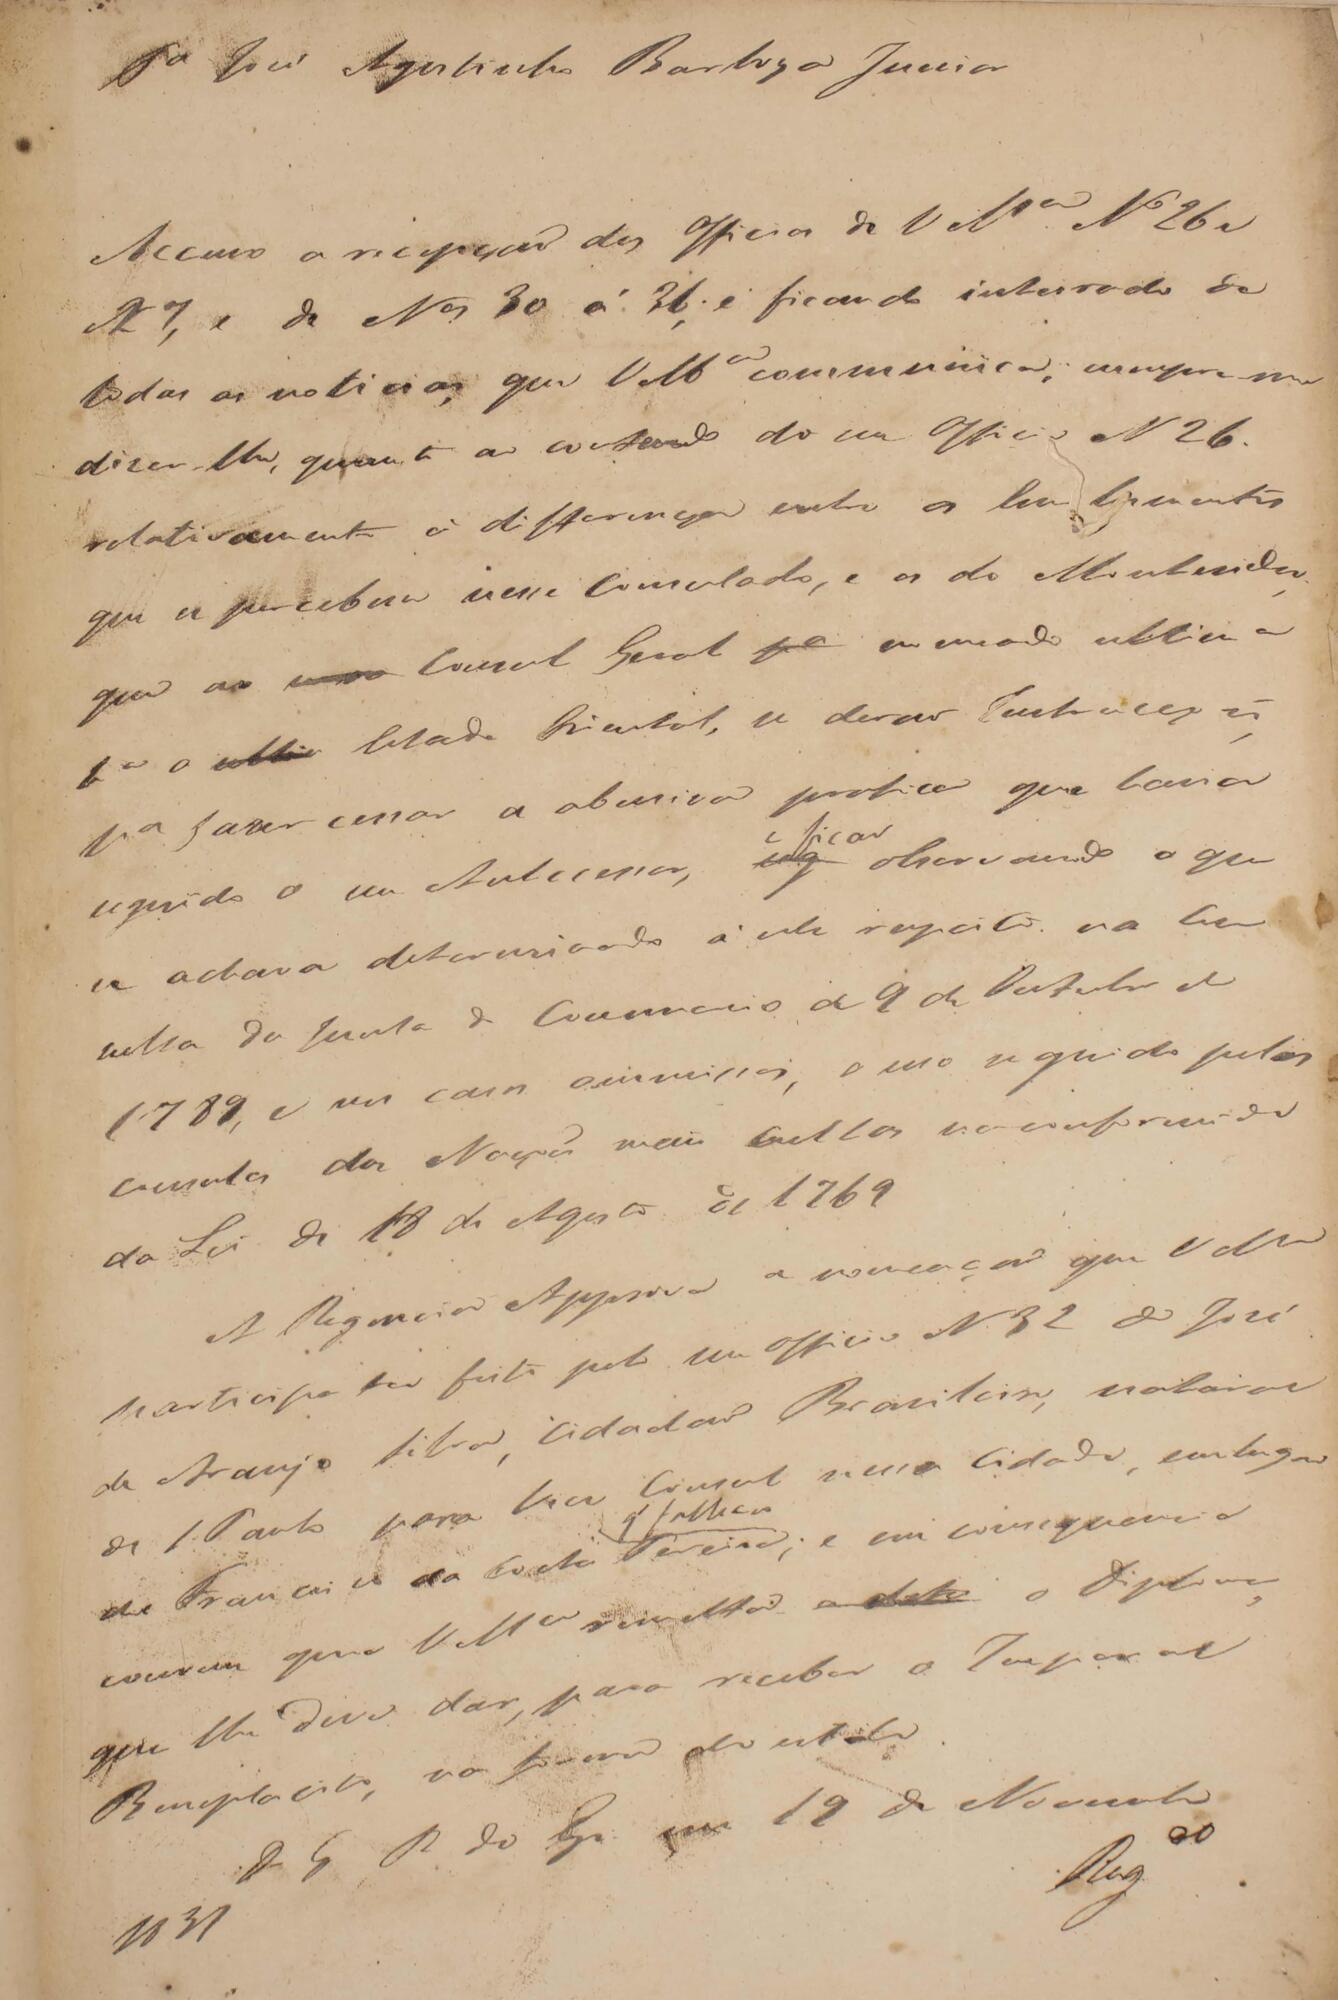 Pª José Agostinho Barboza Junior
Accuso a recepção dos Officios de V Mce Nº 26 e
27, e de Nos 30 á 36; e ficando inteirado de
todas as noticias, que V Mce communica, cumpre-me
dizer-lhe, quanto ao conteudo do seu Officio N 26.
relativamente á differença entre os Emolumentos
que se percebem nesse Consulado, e os de Montevideo,
que ao novo Consul Geral pª nomeado ultima
pª o Estado Oriental, se derão Instrucções,
pª fazer cessar a abusiva pratica que havia
seguido o seu Antecessor, e ficar observando o que
se achava determinado á este respeito na Con
sulta da Junta do Commercio de 9 de Outubro de
1789, e nos casos ommissos, o uso seguido pelos
Consules das Nações mais cultas na conformide
da Lei de 18 de Agosto de 1769
A Regencia Approva a nomeação que V Mce
participa ter feito pelo seu officio N 32 de José
de Araujo Silva, Cidadão Brasileiro, natural
de S. Paulo para Vice Consul nessa Cidade, em lugar
de Francisco da Costa Pereira, q' falleceo; e em consequencia
convem que V Mce remetta o Diploma,
que lhe deve dar, para receber o Imperial
Beneplacito, na forma do estilo.
D G P do em 19 de Novembro
1831